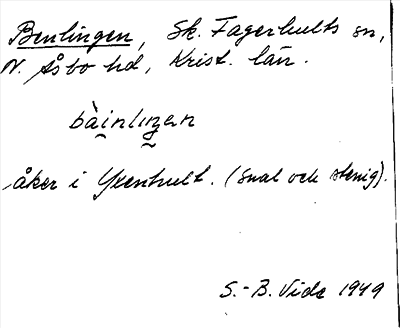 Benlingen, Sk. Fagerhults sn,
N. Åsbo hd, Krist. län.
bàinlıŋen
åker i Yxenhult. (smal och stenig).
S.-B. Vide 1949